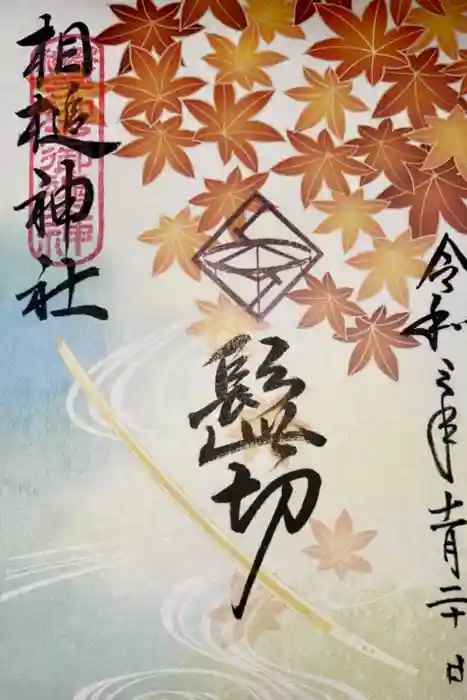 相槌神社
髭切
令和三年十一月二十日